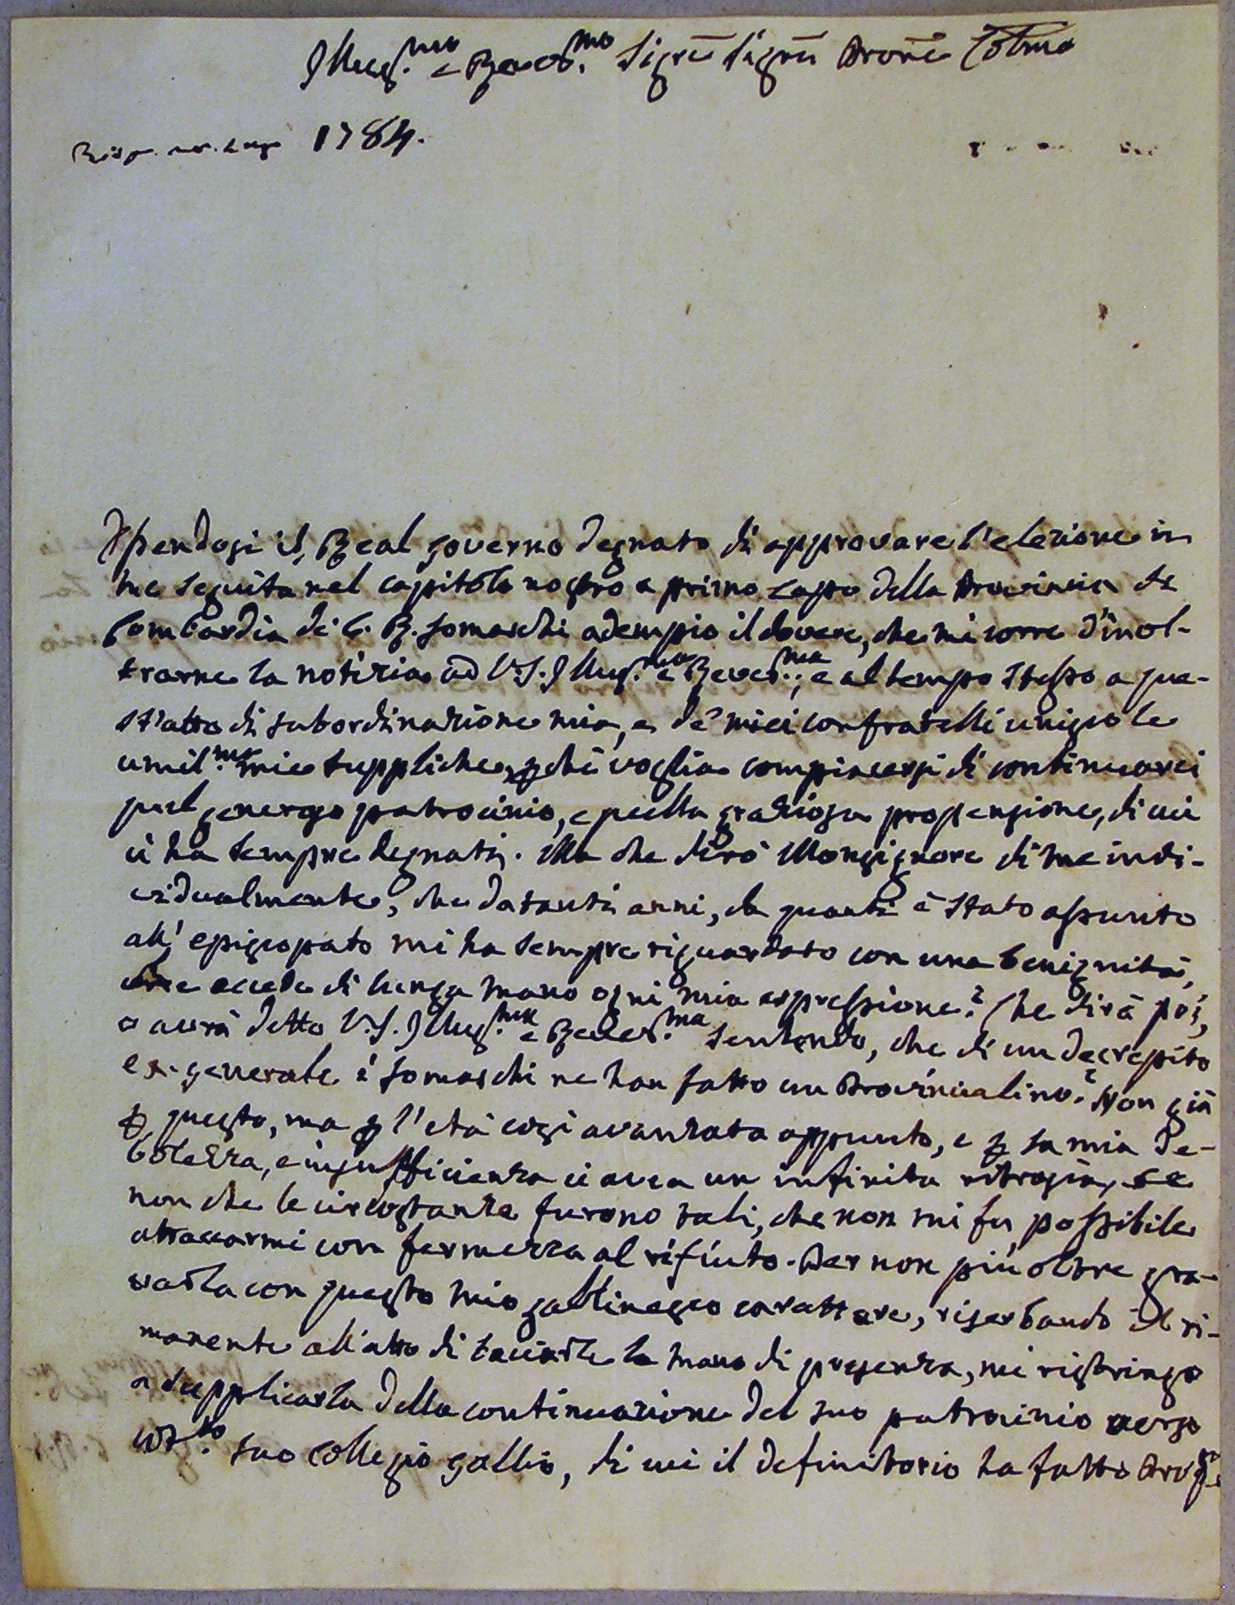 Illus.mo e Rever.mo Sigre Sigre Prone Colmo
1784.
Essendosi il Real Governo degnato di approvare l'elezione in
me seguita nel capitolo nostro a primo capo della Provincia di
Lombardia de' C. R. Somaschi adempio il dovere, che mi corre d'inol-
trarne la notizia ad V.S. Illus.ma e Rever.ma; e al tempo stesso a que-
st'atto di subordinazione mia, e de' miei confratelli unisco le
umil.me mie suppliche, perchè voglia compiacersi di continuarci
quel generoso patrocinio, e quella graziosa propensione, di cui
ci ha sempre degnati. Ma che dirò Monsignore di me indi-
vidualmente, che da tanti anni, da quanti è stato assunto
all'episcopato mi ha sempre riguardato con una benignità,
che eccede di lunga mano ogni mia espressione? Che dirà poi,
o avrà detto V.S. Illus.ma e Rever.ma sentendo, che di un decrepito
ex-generale i Somaschi ne han fatto un Provincialino? Non già
per questo, ma per l'età così avanzata appunto, e per la mia de-
bolezza, e insufficienza ci avea un infinita ritrosia, se
non che le circostanze furono tali, che non mi fu possibile
attaccarmi con fermezza al rifiuto. Per non più oltre gra-
varla con questo mio gallinaceo carattere, riserbando il ri-
manente all'atto di baciarle la mano di presenza, mi ristringo
a supplicarla della continuazione del suo patrocinio verso
cot.to suo Collegio Gallio, di cui il definitorio ha fatto